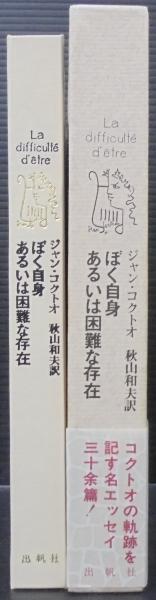 La
difficulté
d'être
ジャン・コクトオ 秋山和夫訳
ぼく自身
あるいは困難な存在
出帆社
La
difficulté
d'être
ジャン・コクトオ 秋山和夫訳
ぼく自身
あるいは困難な存在
コクトオの軌跡を
記す名エッセイ
三十余篇!
出帆社